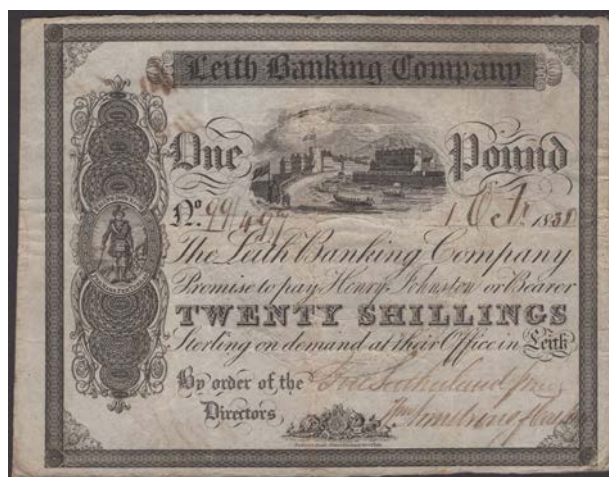 Leith Banking Company
One Pound
No. 99/497 1 Oct. 1838
The Leith Banking Company
Promise to pay Henry Johnston or Bearer
TWENTY SHILLINGS
Sterling on demand at their Office in Leith
By order of the
Directors